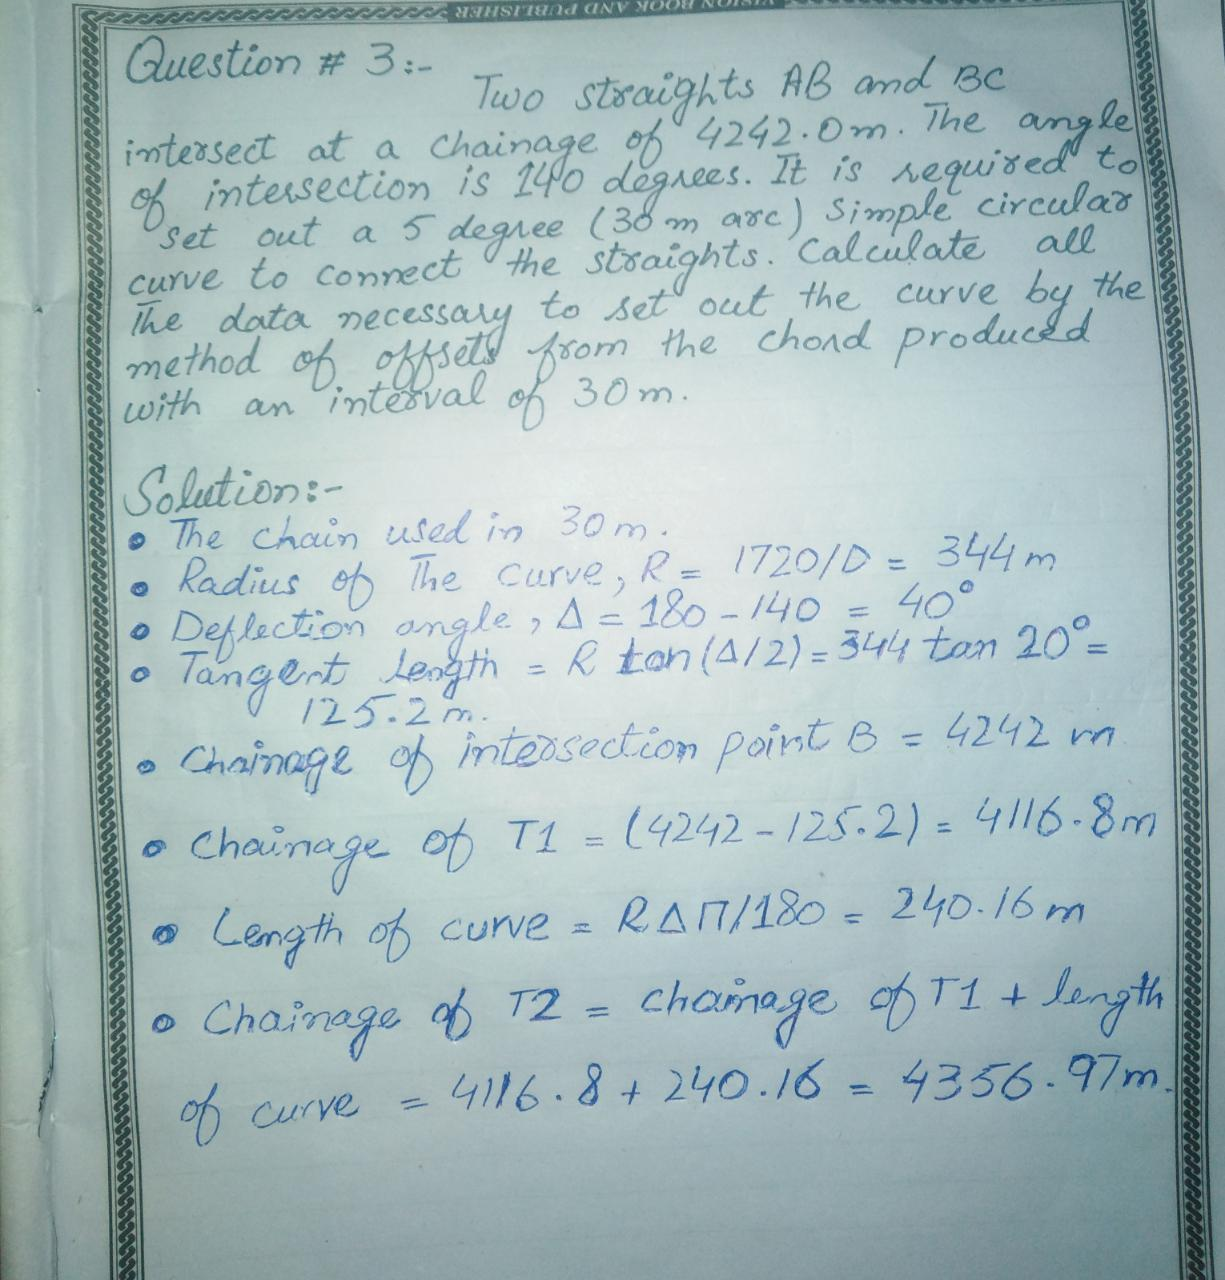 VISION BOOK AND PUBLISHER
Question # 3:-
Two straights AB and BC
intersect at a chainage of 4242.0m. The angle
of intersection is 140 degrees. It is required to
set out a 5 degree (30 m arc) Simple circular
curve to connect the straights. Calculate all
The data necessary to set out the curve by the
method of offsets from the chord produced
with an interval of 30m.
Solution:-
• The chain used in 30m.
• Radius of The Curve, R = 1720/D = 344m
• Deflection angle, Δ = 180 - 140 = 40°
• Tangent length = R tan(Δ/2) = 344 tan 20° =
125.2m.
• Chainage of intersection point B = 4242 m
• Chainage of T1 = (4242 - 125.2) = 4116.8m
• Length of curve = RΔΠ/180 = 240.16m
• Chainage of T2 = chainage of T1 + length
of curve = 4116.8 + 240.16 = 4356.97m.